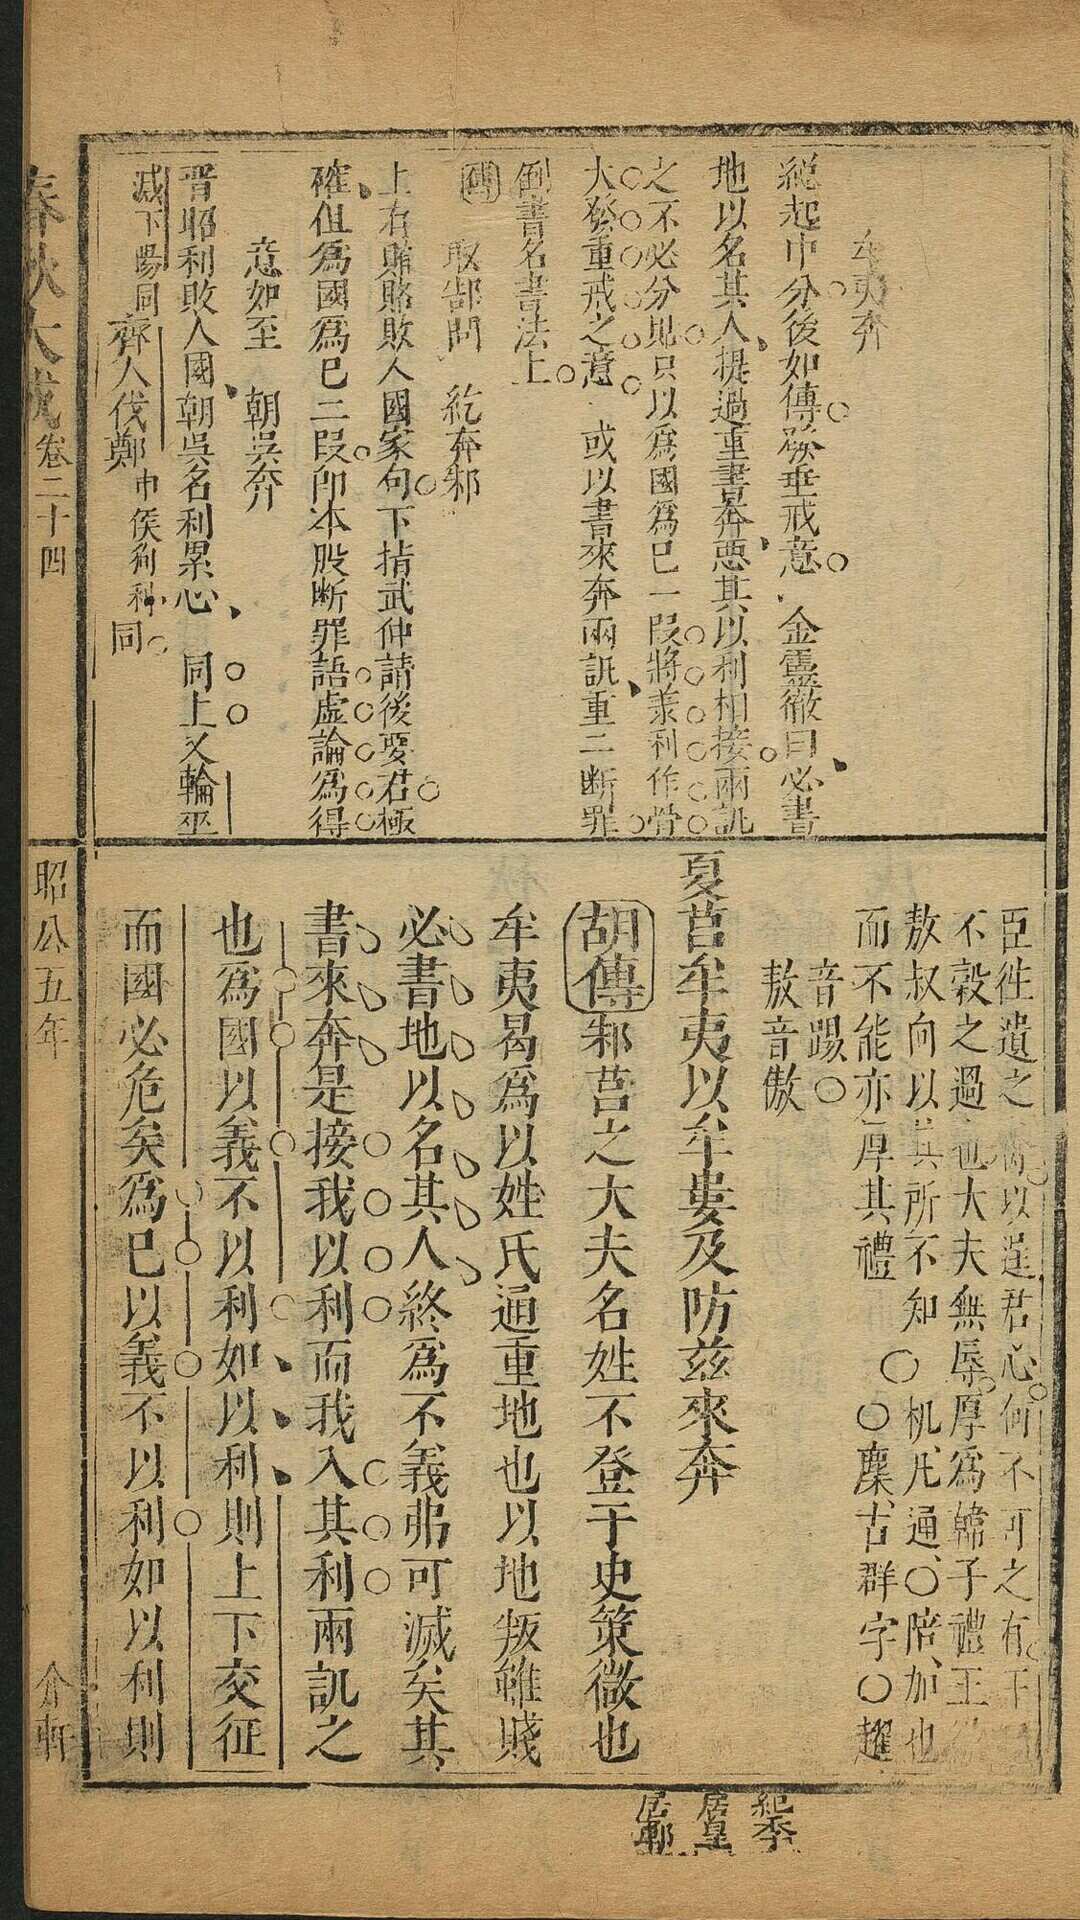 牟夷奔
總起中分後如傳發垂戒意　金靈徹曰必書
地以名其人提過重書奔惡其以利相接兩訊
之不必分貼只以爲國爲已一段將義利作骨
大發重戒之意　或以書來奔兩訊重二斷罪
倒書名書法上
傳
取郜問　紇奔邾
上右賄賂敗人國家句下指武仲請後要君極
確但爲國爲已二段卽本股断罪語虛論爲得
意如至　朝吳奔
晋昭利敗人國朝吳名利累心　同上又輸平
滅下陽同　齊人伐鄭　申侯狥利　同
臣徃遺之　以逞君心何不可之有王
不穀之過也大夫無辱厚爲韓子禮王
敖叔向以其所不知〇机凡通〇陪加也
而不能亦厚其禮　〇麇古群字〇趯
音踢〇
敖音傲
夏莒牟夷以牟婁及防兹來奔
胡傳　邾莒之大夫名姓不登于史策微也
牟夷曷爲以姓氏通重地也以地叛雖賤
必書地以名其人終爲不義弗可滅矣其
書來奔是接我以利而我入其利兩訊之
也爲國以義不以利如以利則上下交征
而國必危矣爲已以義不以利如以利則
春秋大成　卷二十四　昭公五年　介軒
紀季
居皇
居鄆